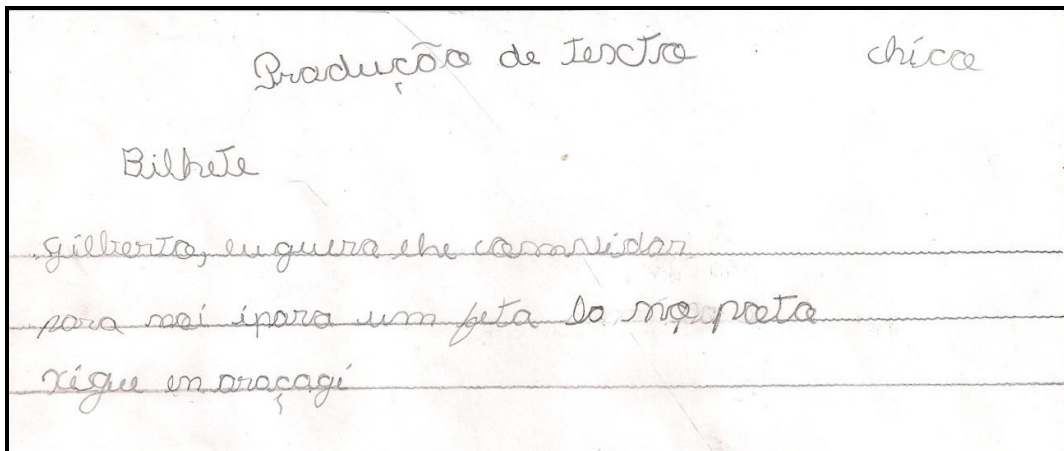 Produção de Texto chica
Bilhete
gilberto, eu guera che comvidar
para noi ipara um feta la no pata
xigue en araçagi